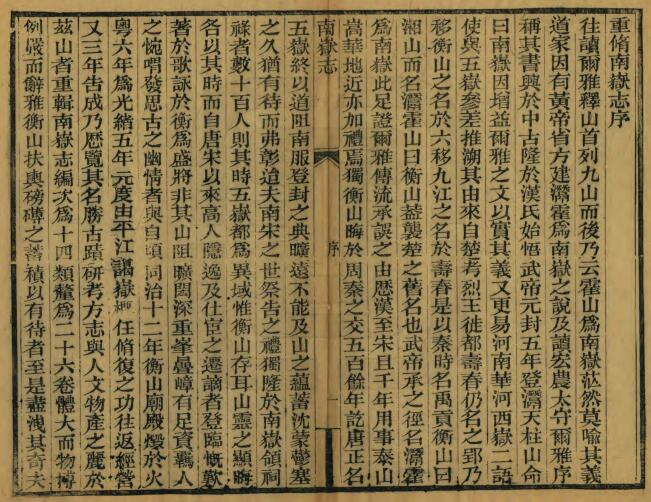 重脩南嶽志序
往讀爾雅釋山首列九山而後乃云霍山爲南嶽茫然莫喻其義
道家因有黃帝省方建灊霍爲南嶽之說及讀宏農太守爾雅序
稱其書興於中古隆於漢氏始悟武帝元封五年登灊天柱山命
曰南嶽因增益爾雅之文以實其義又更易河南華河西嶽二語
使與五嶽參差推溯其由來自楚考烈王徙都壽春仍名之郢乃
移衡山之名於六移九江之名於壽春是以秦時名禹貢衡山曰
湘山而名灊霍山曰衡山葢襲楚之舊名也武帝承之徑名灊霍
爲南嶽此足證爾雅傳流承誤之由歷漢至宋且千年用事泰山
嵩華地近亦加禮焉獨衡山晦於周秦之交五百餘年訖唐正名
南嶽志
序
一
五嶽終以道阻南服登封之典曠遠不能及山之蘊蓄沈蒙鬱塞
之久猶有待而弗彰迨夫南宋之世祭告之禮獨隆於南嶽領祠
祿者數十百人則其時五嶽都爲異域惟衡山存耳山靈之顯晦
各以其時而自唐宋以來高人隱逸及仕宦之遷謫者登臨慨歎
著於歌詠於衡爲盛將非其山阻曠閎深重峯疊嶂有足資羈人
之惋唱發思古之幽情者與自頃同治十二年衡山廟殿燬於火
粵六年爲光緒五年元度由平江謁嶽 任脩復之功往返經營
又三年告成乃歷覽其名勝古蹟研考方志與人文物產之麗於
茲山者重輯南嶽志編次爲十四類釐爲二十六卷體大而物博
例嚴而辭雅衡山扶輿磅礴之蓄積以有待者至是盡洩其奇夫